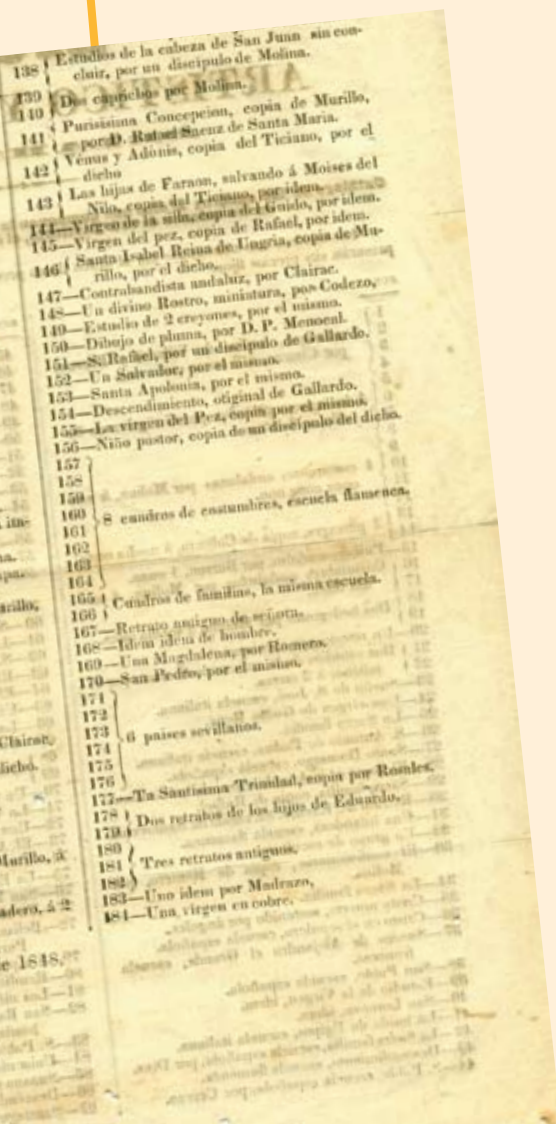 138 Estudios de la cabeza de San Juan sin con-
cluir, por un discípulo de Molina.
139
140 Dos caprichos por Molina.
141 Purisisima Concepcion, copia de Murillo,
por D. Rafael Saenz de Santa Maria.
142 Vénus y Adónis, copia del Ticiano, por el
dicho
143 Las hijas de Faraon, salvando á Moises del
Nilo, copia del Ticiano, por idem.
144—Virgen de la silla, copia del Guido, por idem.
145—Virgen del pez, copia de Rafael, por idem.
146 Santa Isabel Reina de Ungria, copia de Mu-
rillo, por el dicho.
147—Contrabandista andaluz, por Clairac.
148—Un divino Rostro, miniatura, por Codezo,
149—Estudio de 2 creyones, por el mismo.
150—Dibujo de pluma, por D. P. Menocal.
151—S. Rafael, por un discípulo de Gallardo.
152—Un Salvador, por el mismo.
153—Santa Apolonia, por el mismo.
154—Descendimiento, original de Gallardo.
155—La virgen del Pez, copia por el mismo.
156—Niño pastor, copia de un discípulo del dicho.
157
158
159
160 8 cuadros de costumbres, escuela flamenca.
161
162
163
164
165 Cuadros de familias, la misma escuela.
166
167—Retrato antiguo de señora.
168—Idem idem de hombre.
169—Una Magdalena, por Romero.
170—San Pedro, por el mismo.
171
172
173 6 paises sevillanos.
174
175
176
177—Ta Santisima Trinidad, copia por Rosales.
178 Dos retratos de los hijos de Eduardo.
179
180
181 Tres retratos antiguos.
182
183—Uno idem por Madrazo,
184—Una virgen en cobre.
ita-
na.
apa.
arillo,
Clairac.
dicho.
Murillo, à
adero, à 2
e 1848.